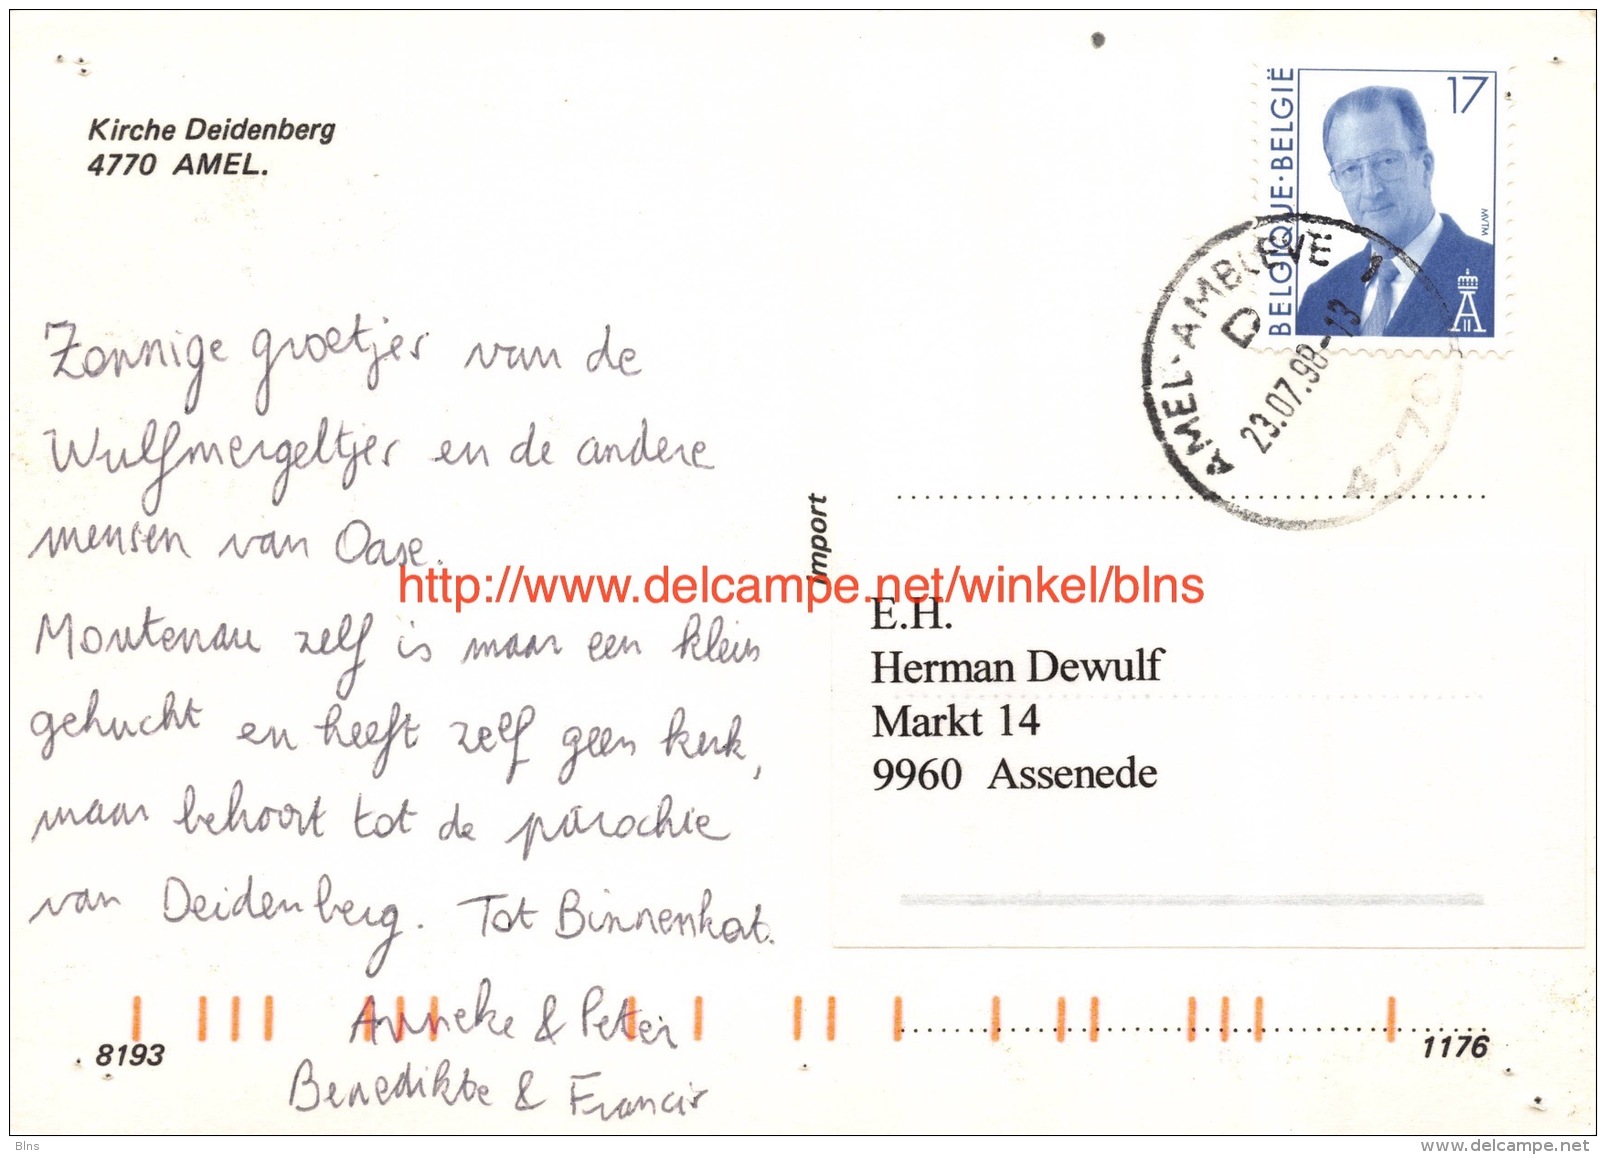 Kirche Deidenberg
4770 AMEL.
BELGIQUE·BELGIË
17
MVTM
AMEL-AMBLEVE
D
23.07.98-13
4770
Zonnige groetjes van de
Wulfmergeltjes en de andere
mensen van Oase.
Montenau zelf is maar een klein
gehucht en heeft zelf geen kerk,
maar behoort tot de parochie
van Deidenberg. Tot Binnenkort.
Anneke & Peter
Benedikte & Francis
import
http://www.delcampe.net/winkel/blns
E.H.
Herman Dewulf
Markt 14
9960 Assenede
8193
1176
Blns
www.delcampe.net